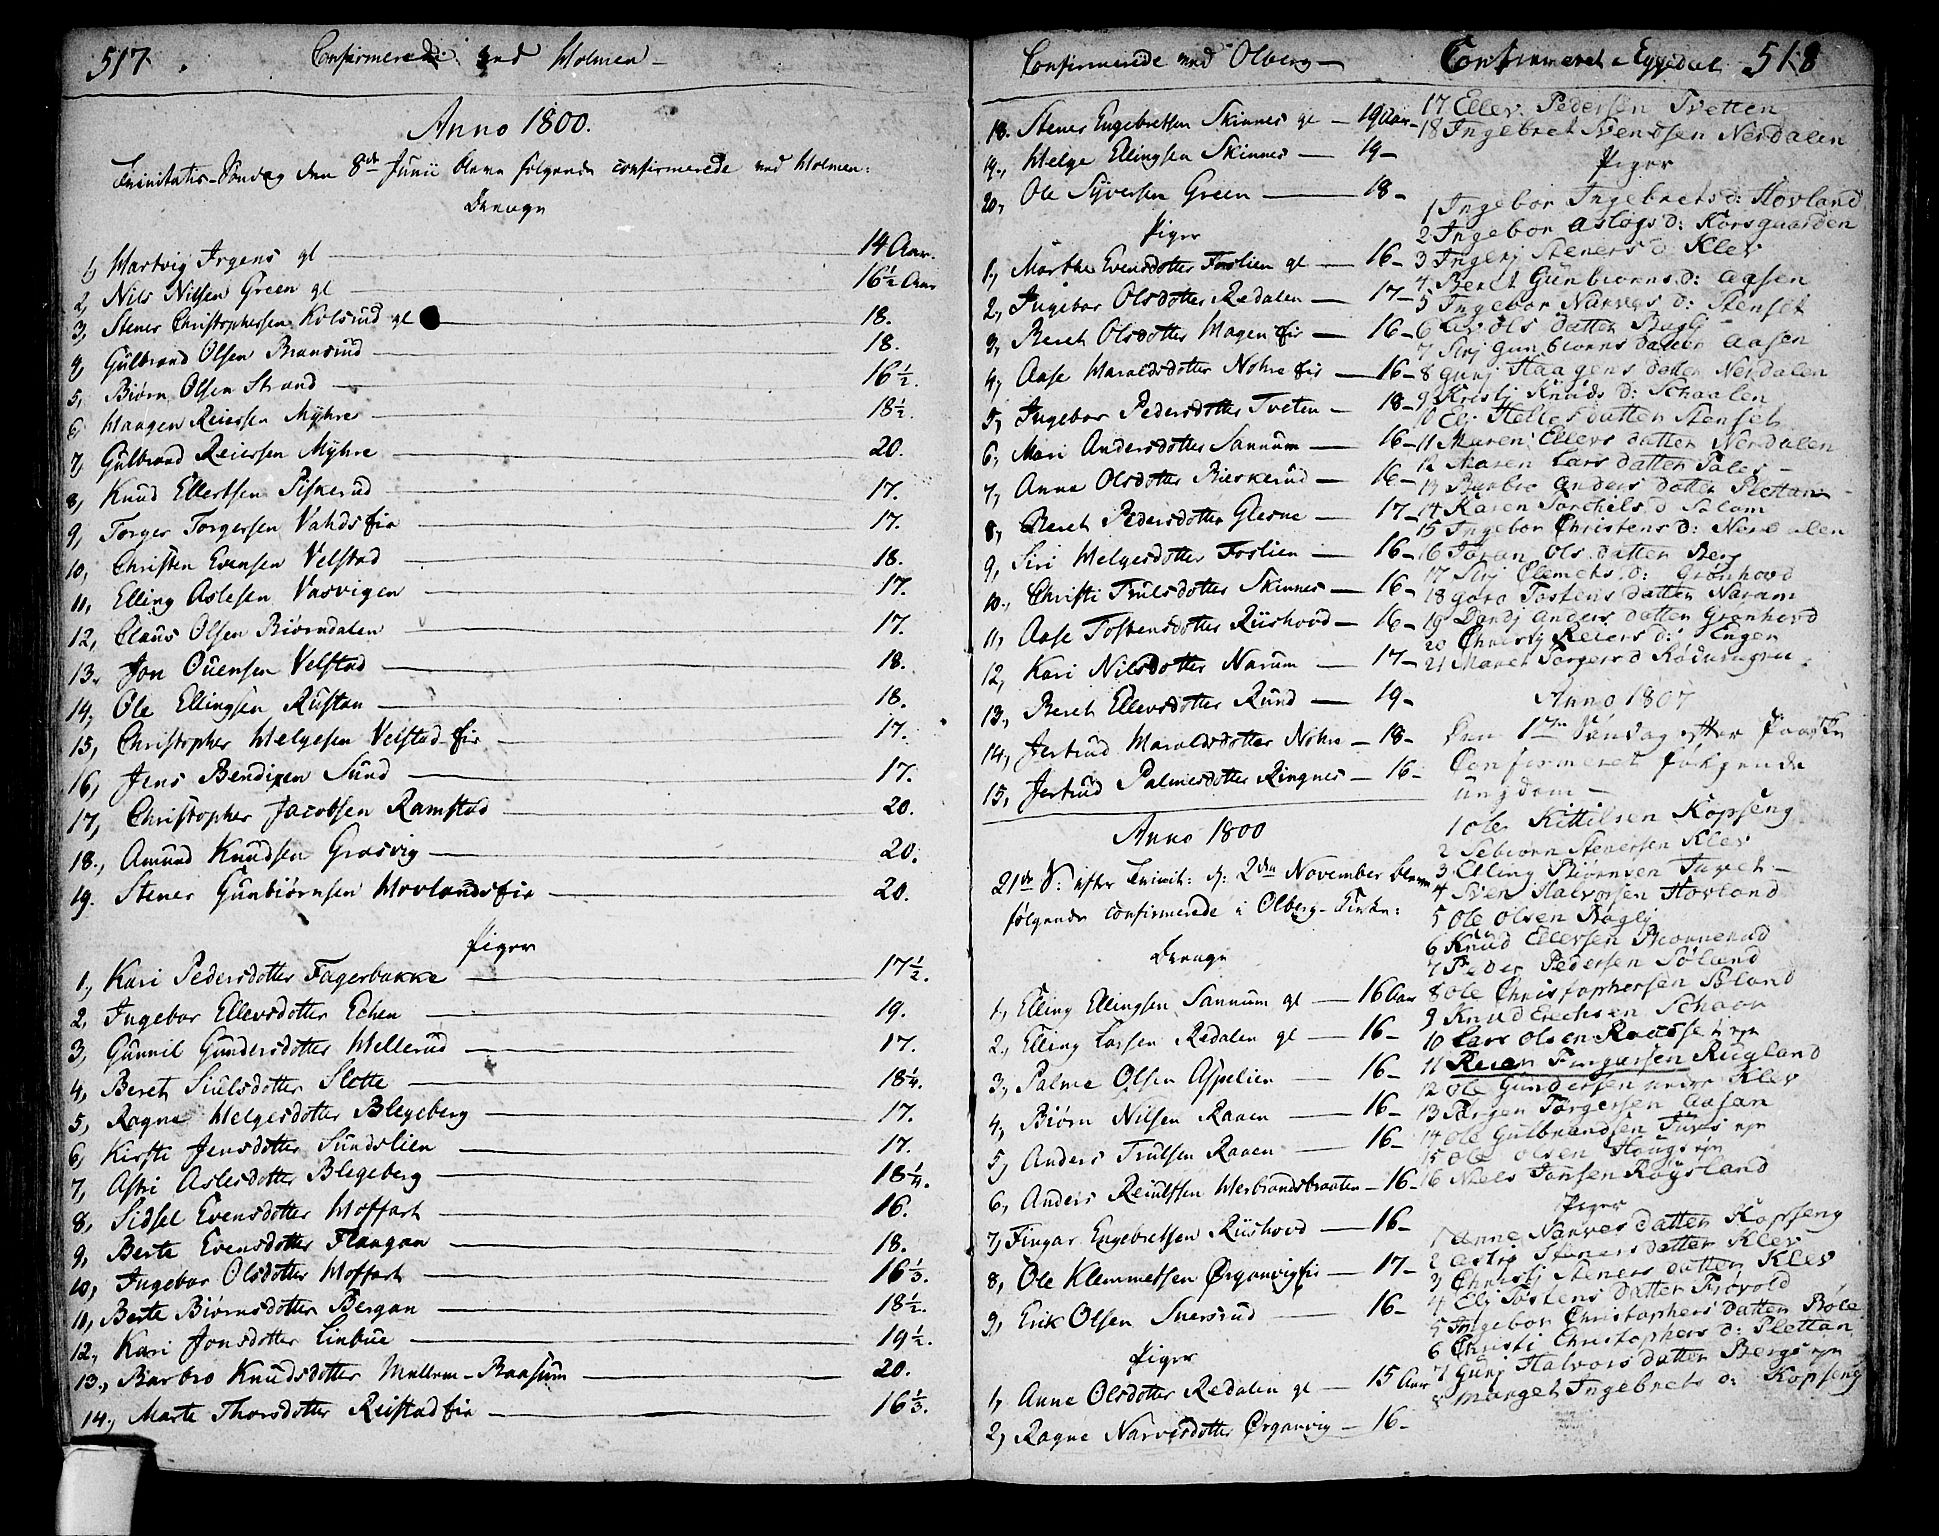 517. Confirmerede ved Holmen
Anno 1800.
Trinitatis-Søndag den 8de Junii bleve følgende confirmerede ved Holmen:
Drenge
1, Hartvig Irgens gl 14 Aar.
2, Nils Nilsen Green gl 16½ Aar
3, Stener Christophersen Kolsrud gl 18.
4, Gulbrand Olsen Bransrud 18.
5, Biørn Olsen Strand 16½.
6, Haagen Reiersen Myhre 18½.
7, Gulbrand Reiersen Myhre 20.
8, Knud Ellertsen Piskerud 17.
9, Torger Torgersen 17.
10, Christen Evensen Velstad 18.
11, Elling Aslesen Vasvigen 17.
12, Claus Olsen Biørndalen 17.
13. Jon Ouensen Velstad 18.
14, Ole Ellingsen Rustan 18.
15, Christopher Helgesen Velstad-eie 17.
16, Jens Bendixen Sund 17.
17, Christopher Jacobsen Ramstad 20.
18., Amund Knudsen Grasvig 20.
19. Stener Gunbiørnsen Hovlandseie 20.
Piger
1., Kari Pedersdotter Fagerbakke 17½.
2, Ingebor Ellevsdotter Echen 19.
3, Gunnil Gundersdotter Hellerud 17.
4, Beret Siulsdotter Slette 18¼.
5, Ragne Helgesdotter Blegeberg 17.
6, Kirsti Jensdotter Sundslien 17.
7, Astri Aslesdotter Blegeberg 18¼.
8, Sidsel Evensdotter Hoffart 16.
9, Berte Evensdotter Flaagan 18.
10, Ingebor Olsdotter Hoffart 16⅓.
11, Berte Biørnsdotter Bergan 18½.
12., Kari Jonsdotter Linbue 19½.
13., Barbro Knudsdotter Mellem-Raasum 20.
14., Marte Thorsdotter Reistadeie 16⅓.
Confirmerede ved Olberg
18. Stener Engebretsen Skinnes gl 19 Aar
19., Helge Ellingsen Skinnes 19
20, Ole Syversen Green 18
Piger
1, Marthe Evensdotter Foslien gl 16
2, Ingebor Olsdotter Redalen 17
3, Beret Olsdotter Hagen eie 16
4, Aase Haraldsdotter Nohre eie 16
5, Ingebor Pedersdotter Tveten 18
6, Mari Andersdotter Sannum 16
7, Anne Olsdotter Bieskerud 16
8, Beret Pedersdotter Glesne 17
9, Siri Helgesdotter Foslien 16
10, Christi Trulsdotter Skinnes 16
11, Aase Tostensdotter Riishovd 16
12, Kari Nilsdotter Narum 17
13, Beret Ellevsdotter Rund 19
14, Jertrud Haraldsdotter Nohre 18
15, Jertrud Palmesdotter Ringnes 16
Anno 1800
21de S: efter Trinit: d: 2den November bleve
følgende confirmerede i Olberg-Kirke:
Drenge
1, Elling Ellingsen Sannum gl 16 Aar
2, Elling Larsen Redalen gl 16
3, Palme Olsen Aspelien 16
4, Biørn Nilsen Raaen 16
5, Anders Trulsen Raaen 16
6, Anders Reiulfsen Herbrandsbraaten 16
7, Fingar Engebretsen Riishovd 16
8, Ole Klemmetsen Ørgenvigeie 17
9, Erik Olsen Snersrud 16
Piger
1, Anne Olsdotter Redalen gl 15 Aar
2, Ragne Narvesdotter Ørgenvig 16
Confirmeret i Eggedal 518
17 Ellev Pedersen Tvetten
18 Ingebret Svendsen Nerdalen
Piger
1 Ingebor Ingebrets d: Hovland
2 Ingebor Aslags d: Korsgaarden
3 Ingerj Steners d Klev
4 Beret Gunbiørns d: Aasen
5 Ingebor Narves d: Stenset
6 Liv Ols datter
7 Sirj Gunbiørns datter Aasen
8 Gurj Haagens datter Nerdalen
9 Kristj Knuds d: Schaalen
10 Eli Helles datter Stenset
11 Maren Ellevs datter Nerdalen
12 Maren Lars datter
13 Barbro Anders datter Plettan
14 Karen Torchils d
15 Ingebor Christens d: Nerdalen
16 Jøran Ols datter Berg
17 Sirj Clemets d: Grønhovd
18 Goro Tostens datter Naram
19 Dardj Anders datter Grønhovd
20 Christj Reiers d: Engen
21 Maret Torgers d
Anno 1807
Den 1te Søndag efter Paaske
Confirmeret følgende
ungdom
1 Ole Kittilsen Kopseng
2 Sebiorn Stenersen Klev
3 Elling Biørnsen
4 Sven Halvorsen Hovland
5 Ole Olsen Baglj
6 Knud Ellevsen
7 Peder Pedersen Søland
8 Ole Christophersen
9 Knud Erichsen Schaar
10 Lars Olsen
11 Reier Torgersen Rugland
12 Ole Gundersen nedre Klev
13 Torgen Torgersen Aasan
14 Ole Gulbrandsen
15 Ole Olsen
16 Niels Jansen Røysland
Piger
1 Anne Narves datter Kopseng
2 Astrj Steners datter Klev
3 Christj Steners datter Klev
4 Eli Tostens datter Frøvold
5 Ingebor Christophers datter Bøle
6 Christi Christophers d: Plettan
7 Gurj Halvors datter Bergs eje
8 Marget Ingebrets d: Kopseng